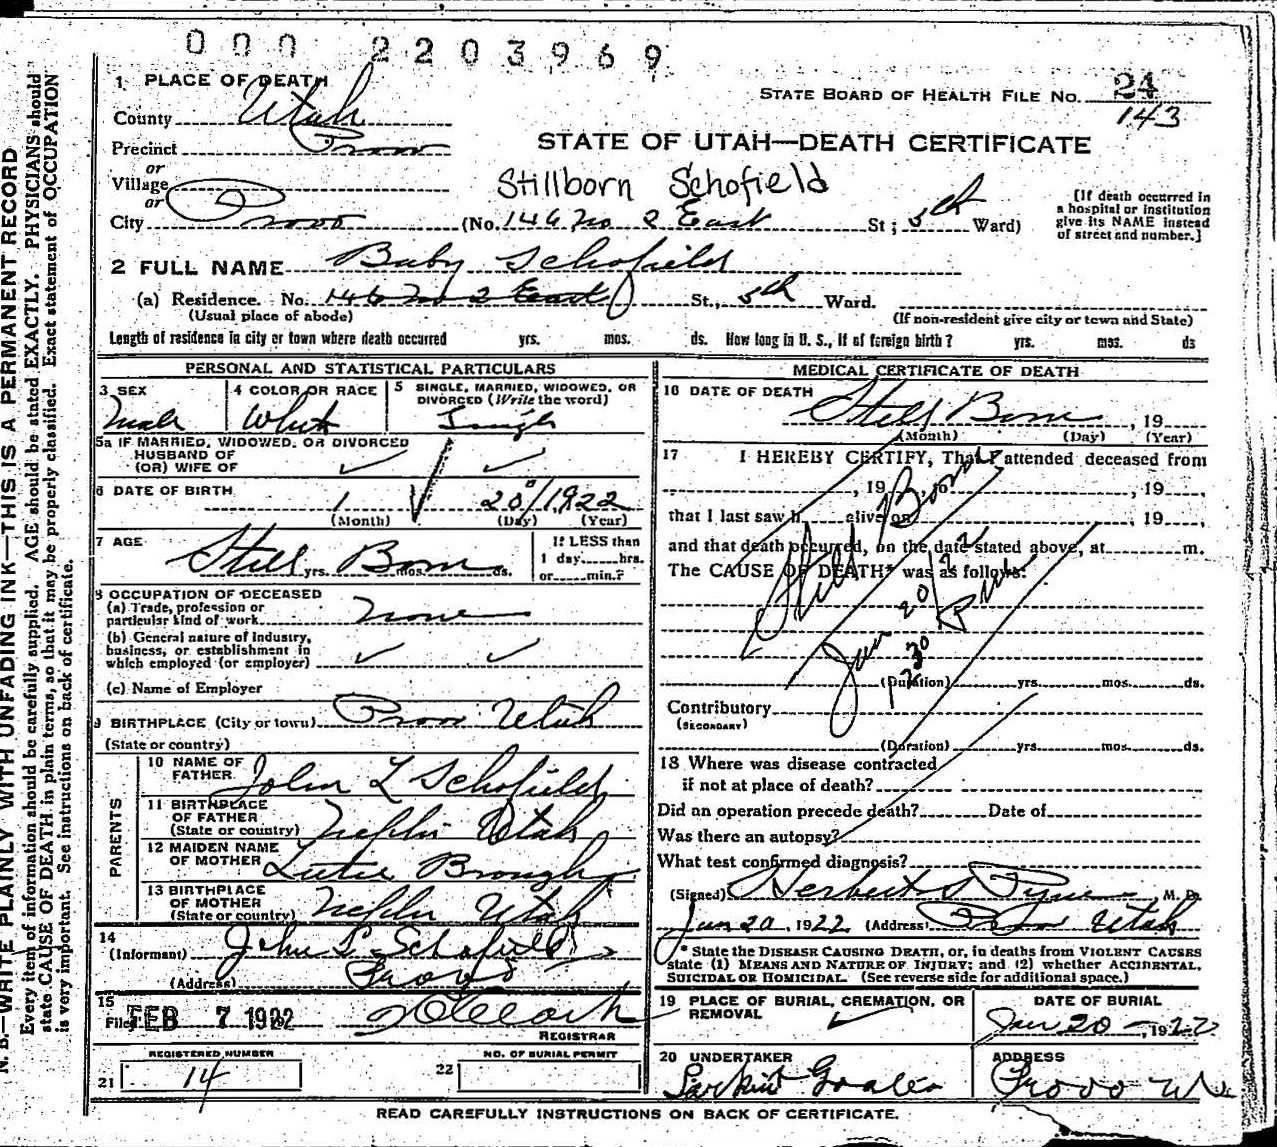 000 2203969
1 PLACE OF DEATH
STATE BOARD OF HEALTH FILE NO. 24
143
County Utah
STATE OF UTAH—DEATH CERTIFICATE
Precinct Provo
or
Village
Stillborn Schofield
or
City Provo (No. 146 No 2 East St; 5th Ward)
[If death occurred in a hospital or institution give its NAME instead of street and number.]
2 FULL NAME Baby Schofield
(a) Residence. No. 146 No 2 East St., 5th Ward.
(Usual place of abode) (If non-resident give city or town and State)
Length of residence in city or town where death occurred yrs. mos. ds. How long in U. S., if of foreign birth? yrs. mos. ds
PERSONAL AND STATISTICAL PARTICULARS
3 SEX Male
4 COLOR OR RACE White
5 SINGLE, MARRIED, WIDOWED, OR DIVORCED (Write the word) Single
5a IF MARRIED, WIDOWED, OR DIVORCED
HUSBAND OF
(OR) WIFE OF
6 DATE OF BIRTH 1 20 1922
(Month) (Day) (Year)
7 AGE Still Born
yrs. mos. ds.
If LESS than
1 day hrs.
or min.?
8 OCCUPATION OF DECEASED
(a) Trade, profession or
particular kind of work none
(b) General nature of industry,
business, or establishment in
which employed (or employer)
(c) Name of Employer
9 BIRTHPLACE (City or town) Provo Utah
(State or country)
PARENTS
10 NAME OF FATHER John L Schofield
11 BIRTHPLACE OF FATHER (State or country) Nephi Utah
12 MAIDEN NAME OF MOTHER Brough
13 BIRTHPLACE OF MOTHER (State or country) Nephi Utah
14
(Informant) John L. Schofield
(Address) Provo
15
Filed FEB 7 1922
REGISTRAR
REGISTERED NUMBER
21 14
NO. OF BURIAL PERMIT
22
MEDICAL CERTIFICATE OF DEATH
16 DATE OF DEATH Still Born , 19
(Month) (Day) (Year)
17 I HEREBY CERTIFY, That I attended deceased from
, 19 to , 19
that I last saw h alive on , 19
and that death occurred, on the date stated above, at m.
The CAUSE OF DEATH* was as follows:
Still Born
Jan 20/22
12 30 P.M.
(Duration) yrs. mos. ds.
Contributory
(SECONDARY)
(Duration) yrs. mos. ds.
18 Where was disease contracted
if not at place of death?
Did an operation precede death? Date of
Was there an autopsy?
What test confirmed diagnosis?
(Signed) Herbert S Pyne M. D.
Jan 20, 1922 (Address) Provo Utah
* State the DISEASE CAUSING DEATH, or, in deaths from VIOLENT CAUSES
state (1) MEANS AND NATURE OF INJURY; and (2) whether ACCIDENTAL,
SUICIDAL OR HOMICIDAL. (See reverse side for additional space.)
19 PLACE OF BURIAL, CREMATION, OR REMOVAL
DATE OF BURIAL
Jan 20 1922
20 UNDERTAKER
ADDRESS
Provo
READ CAREFULLY INSTRUCTIONS ON BACK OF CERTIFICATE.
N. B.—WRITE PLAINLY WITH UNFADING INK—THIS IS A PERMANENT RECORD
Every item of information should be carefully supplied. AGE should be stated EXACTLY. PHYSICIANS should
state CAUSE OF DEATH in plain terms, so that it may be properly classified. Exact statement of OCCUPATION
is very important. See instructions on back of certificate.